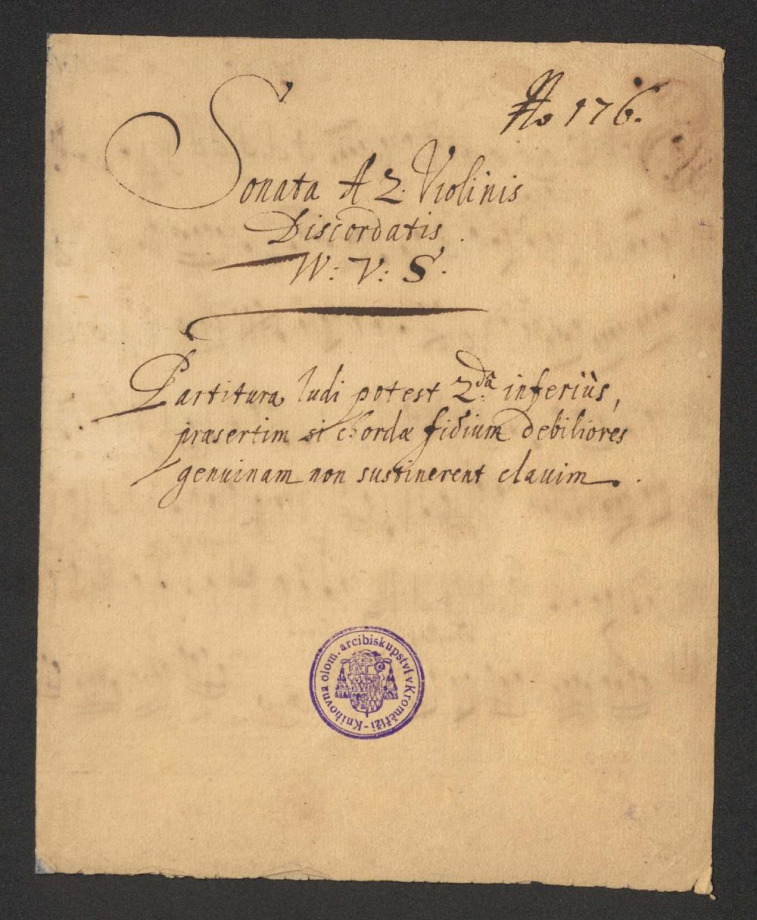 No 176.
Sonata A 2. Violinis
Discordatis.
W: V: S.
Partitura ludi potest 2.da inferiùs,
præsertim si chordæ fidium debiliores
genuinam non sustinerent clauim.
Knihovna olom. arcibiskupství v Kroměříži -